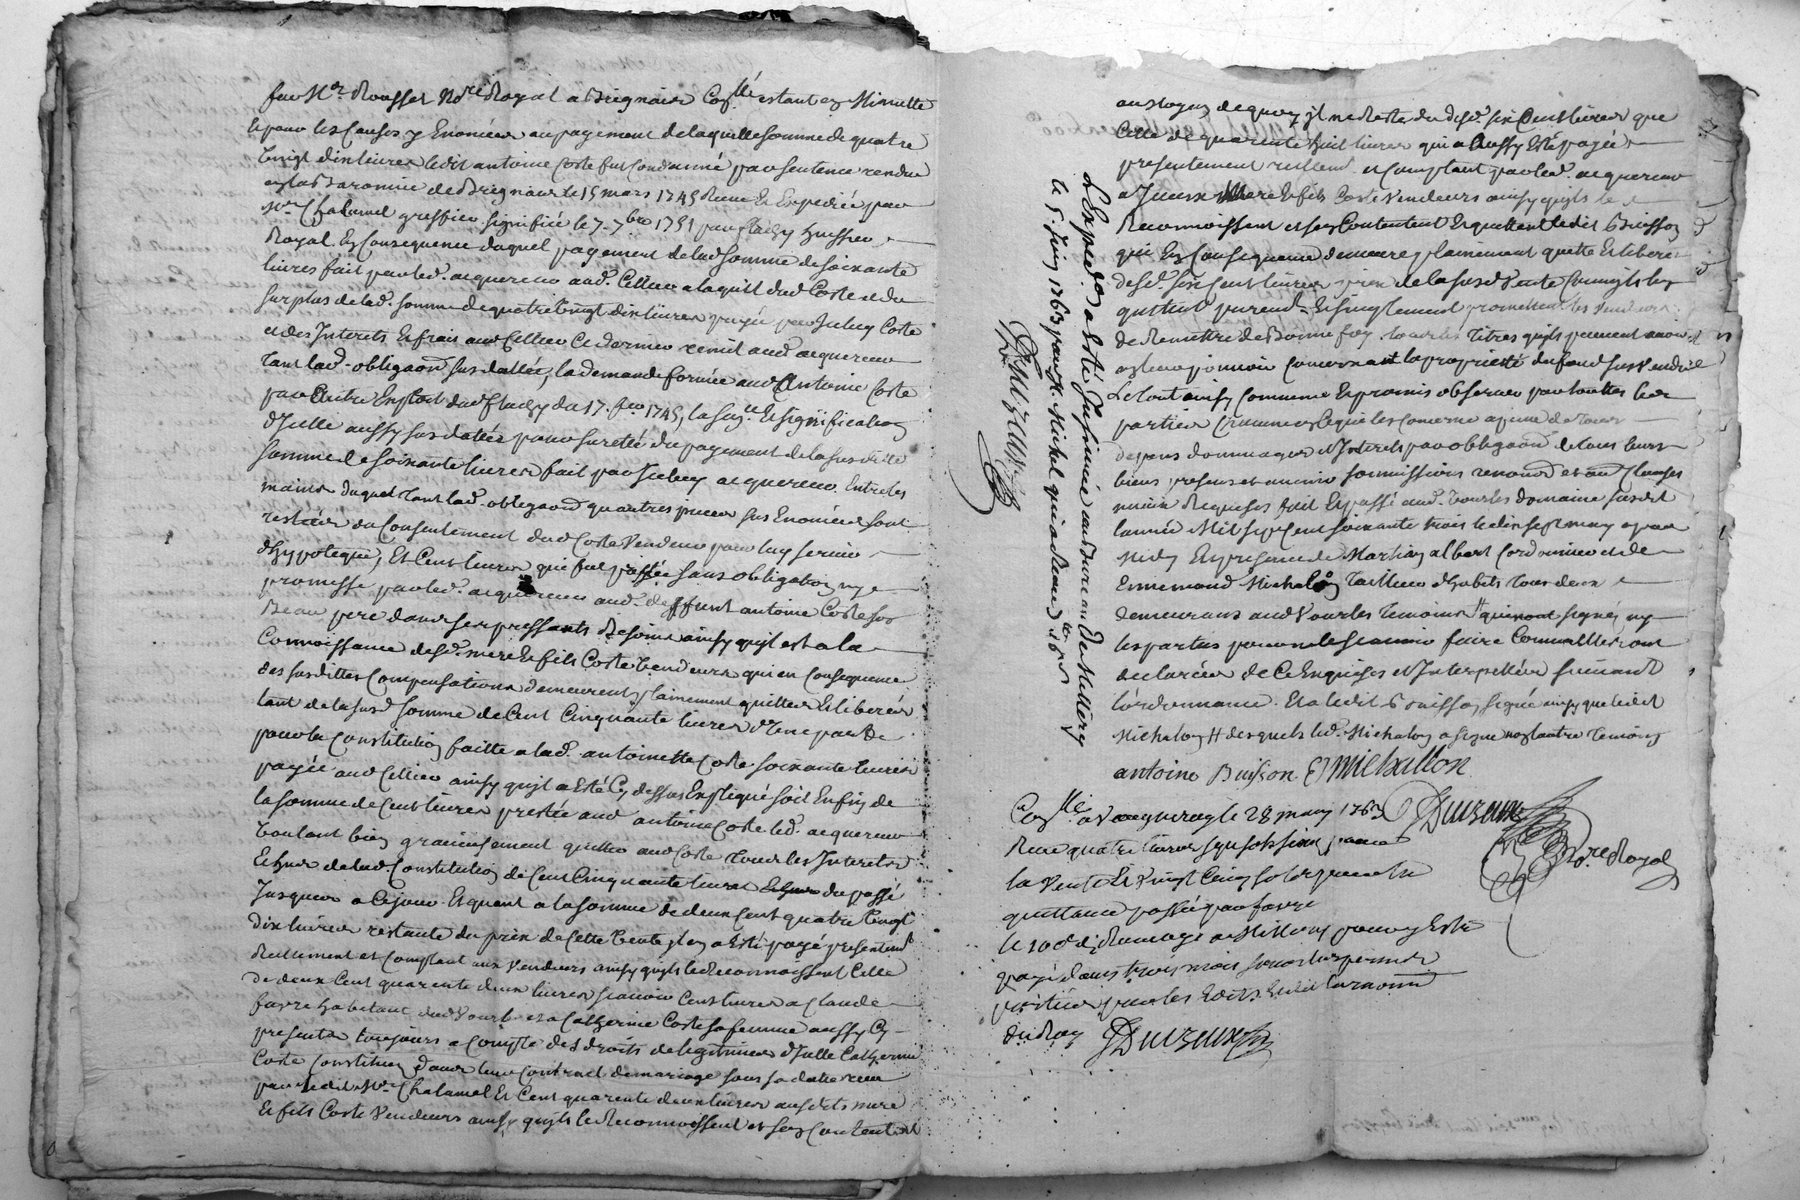 par Mr Rousset No.re Royal a Bregnaire Con.llé estant en Minutte
Et pour les Causes y Enoncées au payement de laquelle somme de quatre
vingt dix livres ledit antoine Coste fut Condamné par sentence rendue
en la Baronnie de le 15 mars 1745 Reçue Et Expediée par
Mre Chalamel greffier signifiée le 7. 7bre 1751 par flachy huissier
Royal. En Consequence duquel payement de lad. somme de soixante
livres fait par led. acquereur aud. Cellier a laquitt dud Coste et du
surplus de lad. somme de quatre vingt dix livres payée par Coste
et des Interets Et frais aud Cellier Ce dernier remit aud. acquereur
Tant lad. obligaon sus dattée, la demande formée aud Antoine Coste
par Autre Exploit dud flachy du 17. 1745, la Sen.ce Et signiffication
d'Icelle aussy sus datées pour sureté du payement de la susditte
somme de soixante livres fait par acquereur. Entre les
mains duquel tant lad. obligaon qu'autres pieces sus Enoncées sont
restées du Consentement dud Coste vendeur pour luy servir
d'hypoteque, Et Cent livres qui fut passée sans obligation ny
promesse par led. acquereur aud. deffunt antoine Coste son
Beau pere dans ses pressants Besoins ainsy qu'il est a la
Connoissance desd. mere Et fils Coste vendeurs qui en Consequence
des susdittes Compensations demeurent plainement quittes Et liberés
tant de la susd somme de Cent Cinquante livres d'une part de
pour la Constitution faitte a lad. antoinette Coste soixante livres
payée aud Cellier ainsy qu'il a Esté Cy dessus Expliqué soit Enfin de
la somme de Cent livres prestée aud antoine Coste led. acquereur
voulant bien gracieusement quitter aud Coste tous les Interets
Echus de lad. Constitution de Cent Cinquante livres Echus du passé
Jusques a Ce jour. Et quant a la somme de deux Cent quatre vingt
dix livres restante du prix de Cette vente il en a Esté payé presentemt
Reellement et Comptant aux vendeurs ainsy qu'ils le Reconnoissent Celle
de deux Cent quarente deux livres scavoir Cent livres a Claude
favre habitant dud vourles et a Catherine Coste sa femme aussy Cy
presents toujours a Compte des droits de legitimes d'Icelle Catherine
Coste Constitués dans leur Contract de mariage sous sa datte reçu
par ledit Mre Chalamel Et Cent quarente deux livres auxdits mere
Et fils Coste vendeurs ainsy qu'ils le Reconnoissent et s'en Contentent
au Moyen de quoy il ne Reste du desd. six Cent livres que
Celle de quarente huit livres qui a Aussy Esté payée
presentement reellemt et Comptant par led. acquereur
a Iceux Mere Et fils Coste vendeurs ainsy qu'ils le
Reconnoissent et s'en Contentent Et quittent ledit Buisson
qui En Consequence demeure plainement quitte Et liberé
desd. six Cent livres prix de la susd vente
quittent puremt Et simplement promettent les vendeurs
de Remettre de Bonne foy tous les Titres qu'ils peuvent avoir
en leur pouvoir Concernant la proprieté du fond sus vendu
Le tout ainsy Convenu Et promis observer par touttes les
parties Chacune en Ce qui les Concerne a peine de tous
depens dommages et Interets par obligaon de tous leurs
biens presents et avenir soumissions renonon et autres Clauses
Requises fait Et passé aud. vourles domaine susdit
l'année Mil sept Cent soixante trois le dix sept may apres
Midy En presence de Martin albert Cordonnier et de
Ennemond Michalon Tailleur d'habits tous deux
demeurants aud vourles temoins # qui n'ont signé ny
les parties pour ne le scavoir faire Comme Elles ont
declarées de Ce Enquises et Interpellées suivant
l'ordonnance. Et a ledit Buisson signé ainsy que ledit
Michalon # desquels led. Michalon a signé non l'autre temoins
antoine Buisson E michallon
Con.llé a le 28 may 1763 Duvernay
Reçu quatre livres
la vente Et vingt Cinq sols pour la
quittance passée par favre
le 100e d. a Millery pour y Estre
payé dans trois mois sous les peines
portées par les Edits Et declarations
du Roy Duvernay
No.re Royal
L'Expedon a Esté Insinuée au Bureau De Millery
le 5. Juin 1763 par Mr. Michel qui a Reçu